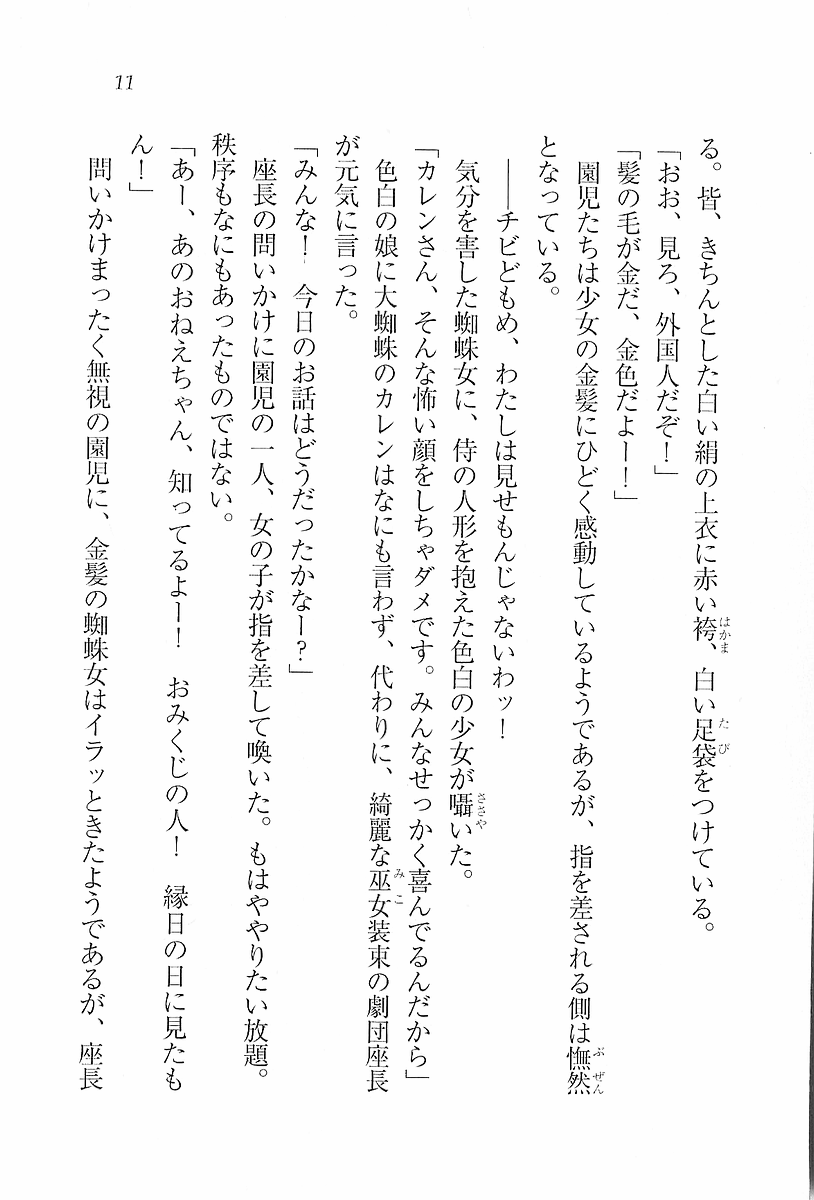 11
る。皆、きちんとした白い絹の上衣に赤い袴、白い足袋をつけている。
「おお、見ろ、外国人だぞ！」
「髪の毛が金だ、金色だよー！」
園児たちは少女の金髪にひどく感動しているようであるが、指を差される側は憮然
となっている。
――チビどもめ、わたしは見せもんじゃないわッ！
気分を害した蜘蛛女に、侍の人形を抱えた色白の少女が囁いた。
「カレンさん、そんな怖い顔をしちゃダメです。みんなせっかく喜んでるんだから」
色白の娘に大蜘蛛のカレンはなにも言わず、代わりに、綺麗な巫女装束の劇団座長
が元気に言った。
「みんな！　今日のお話はどうだったかなー？」
座長の問いかけに園児の一人、女の子が指を差して喚いた。もはややりたい放題。
秩序もなにもあったものではない。
「あー、あのおねえちゃん、知ってるよー！　おみくじの人！　縁日の日に見たも
ん！」
問いかけまったく無視の園児に、金髪の蜘蛛女はイラッときたようであるが、座長